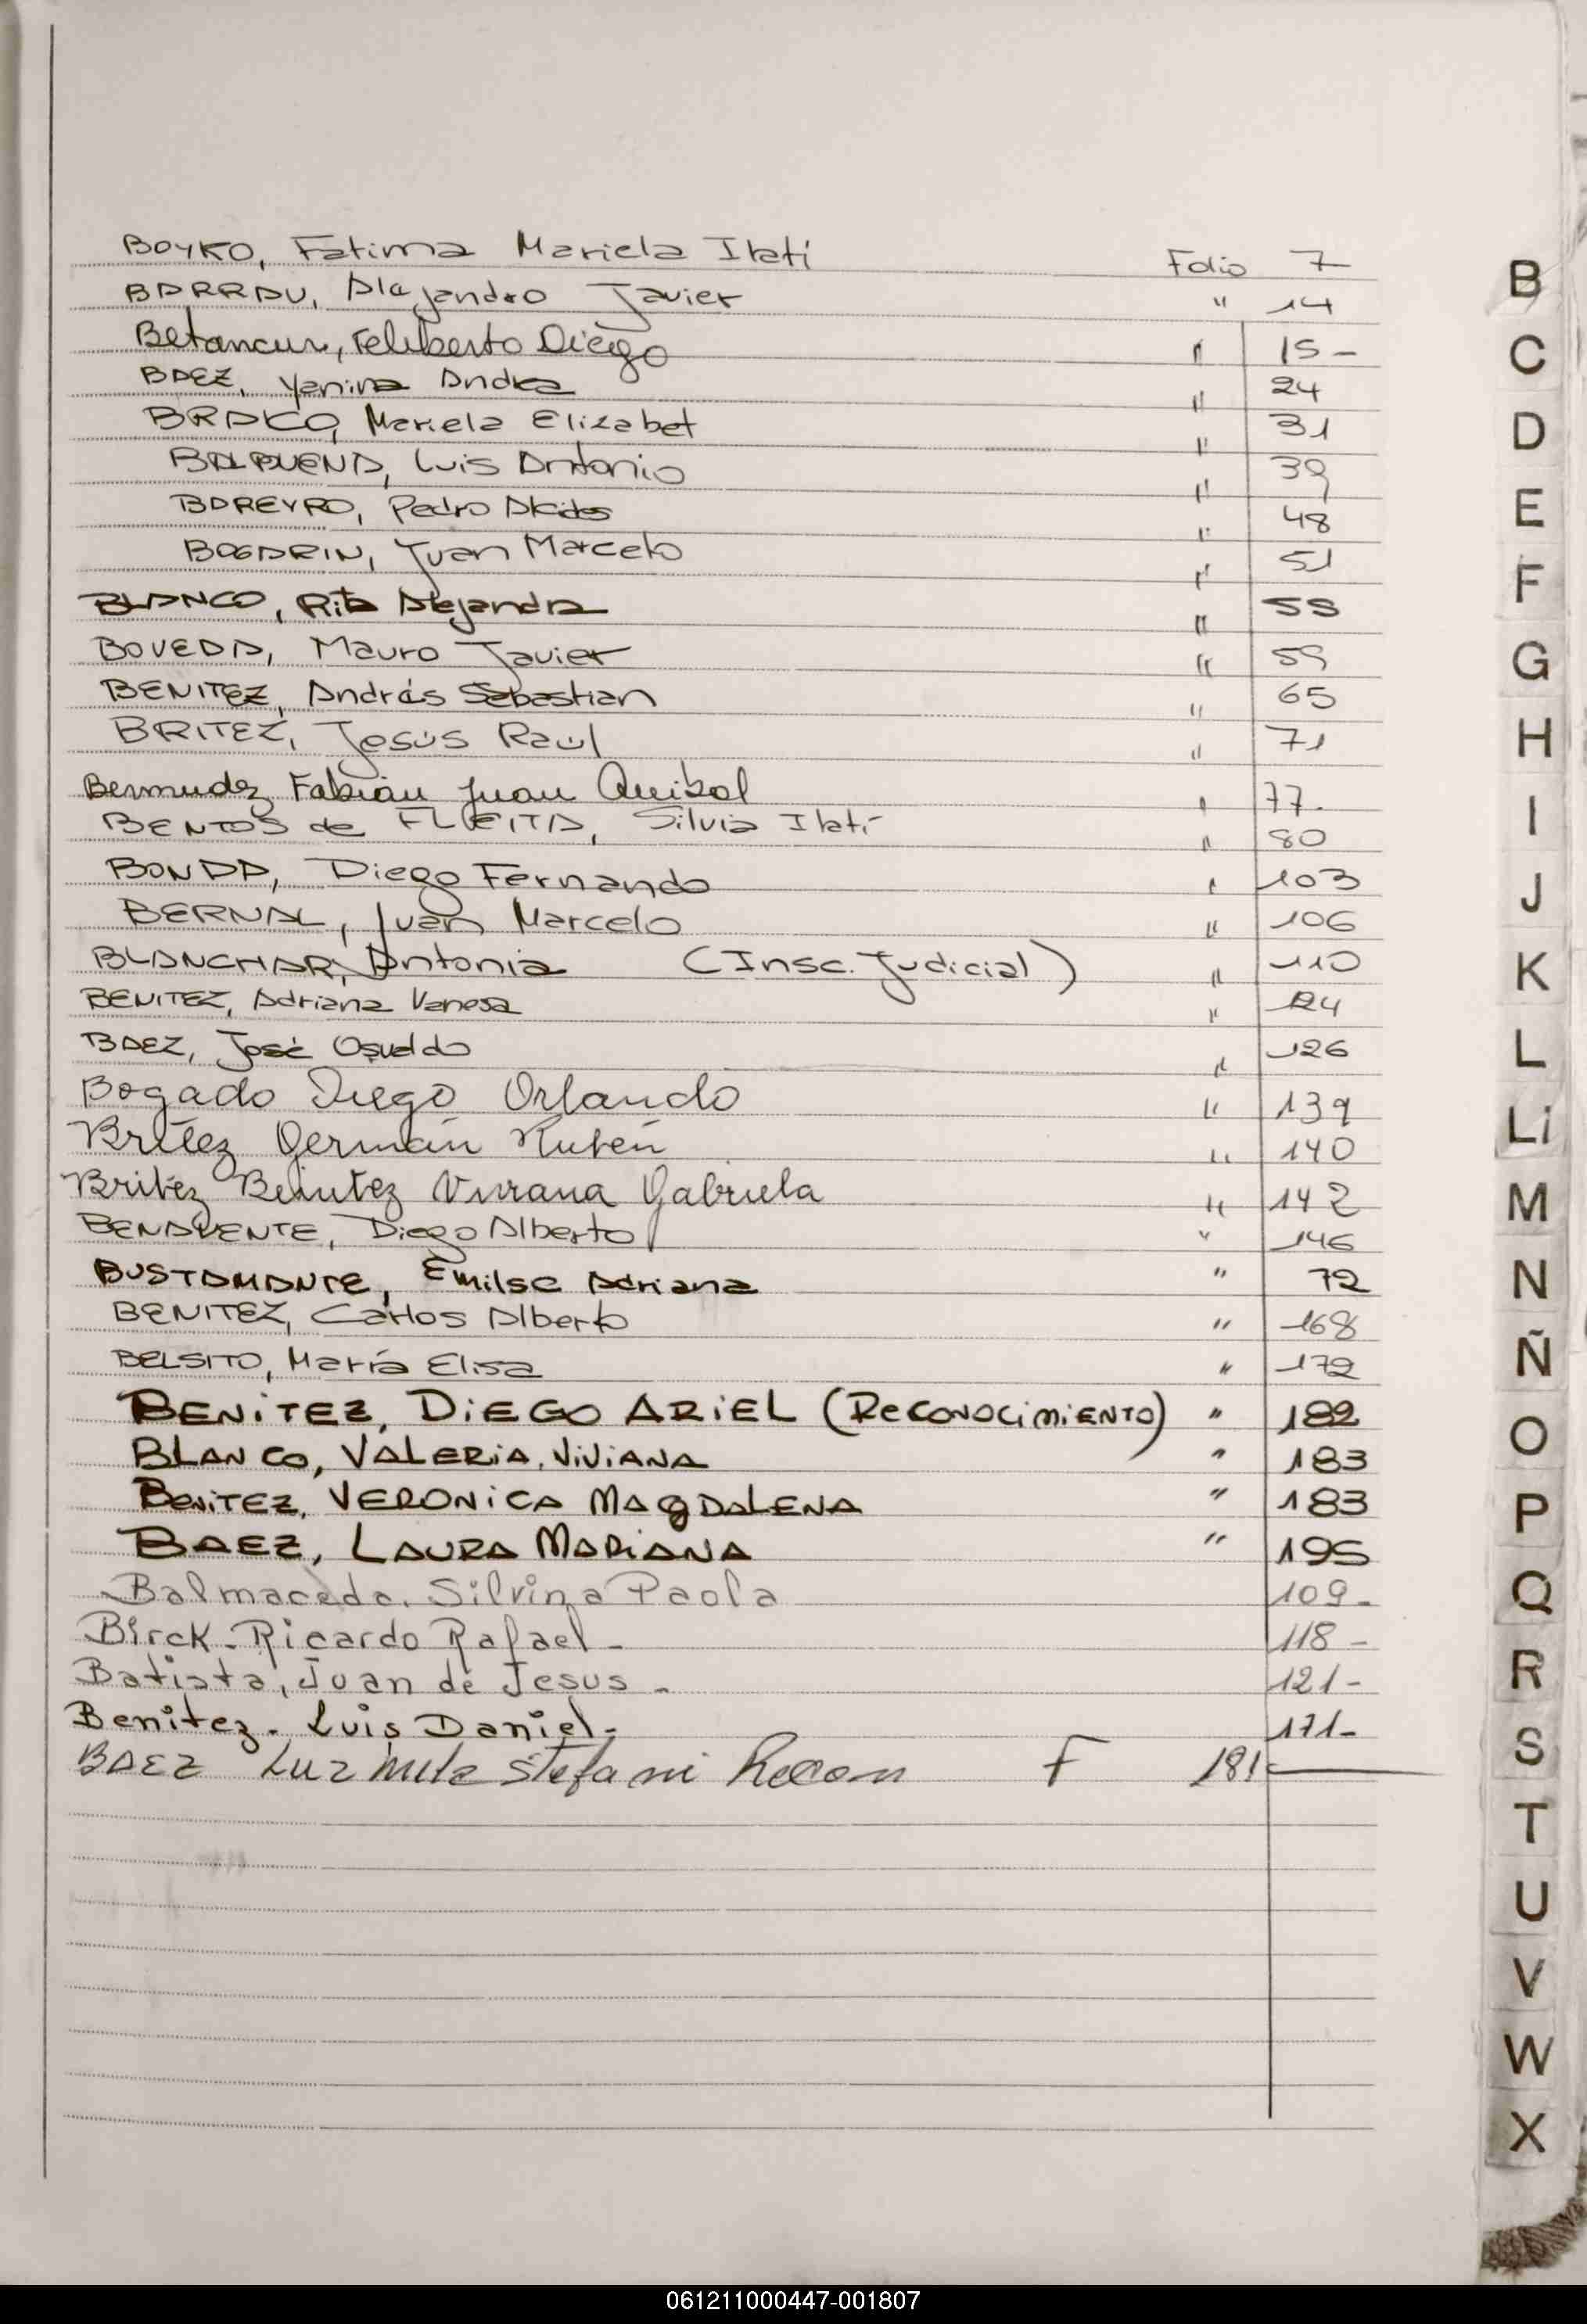 BOYKO, Fatima Mariela Itatí Folio 7
BARRAU, Alejandro Javier " 14
Betancur, Feliberto Diego " 15-
BAEZ, Yanina Andrea " 24
BRACO, Mariela Elizabet " 31
BALBUENA, Luis Antonio " 39
BAREYRO, Pedro Alcides " 48
BOGARIN, Juan Marcelo " 51
BLANCO, Rita Alejandra "
BOVEDA, Mauro Javier " 59
BENITEZ, Andrés Sebastian " 65
BRITEZ, Jesús Raúl " 71
Bermudez Fabián Juan Anibal " 77.
BENTOS de FLEITA, Silvia Itatí " 80
BONDA, Diego Fernando " 103
BERNAL, Juan Marcelo " 106
BLANCHAR, Antonia (Insc. Judicial) " 110
BENITEZ, Adriana Vanesa " 124
BAEZ, José Osvaldo " 126
Bogado Diego Orlando " 139
Britez Germán Rubén " 140
Britez Benitez Viviana Gabriela " 142
BENAVENTE, Diego Alberto " 146
BUSTAMANTE, Emilse Adriana " 72
BENITEZ, Carlos Alberto " 168
BELSITO, María Elisa " 172
BENITEZ, DIEGO ARIEL (RECONOCIMIENTO) " 182
BLANCO, VALERIA, VIVIANA " 183
BENITEZ, VERONICA MAGDALENA " 183
BAEZ, LAURA MARIANA " 195
Balmaceda. Silvina Paola 109-
Birck-Ricardo Rafael- 118-
Batista, Juan de Jesus- 121-
Benitez- Luis Daniel- 171-
BAEZ Luz Mila Stefani Recon F 181
B
C
D
E
F
G
H
I
J
K
L
Ll
M
N
Ñ
O
P
Q
R
S
T
U
V
W
X
061211000447-001807